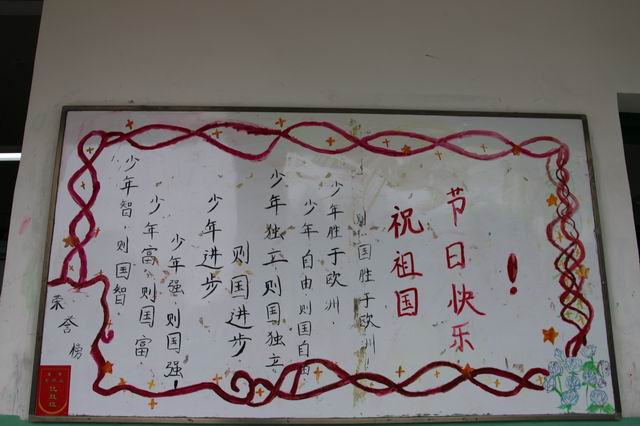 少年智，则国智．
少年富，则国富．
少年强，则国强！
少年进步
则国进步
少年独立，则国独立
少年自由，则国自由
少年胜于欧洲，
则国胜于欧洲！
祝祖国
节日快乐
！
荣誉榜